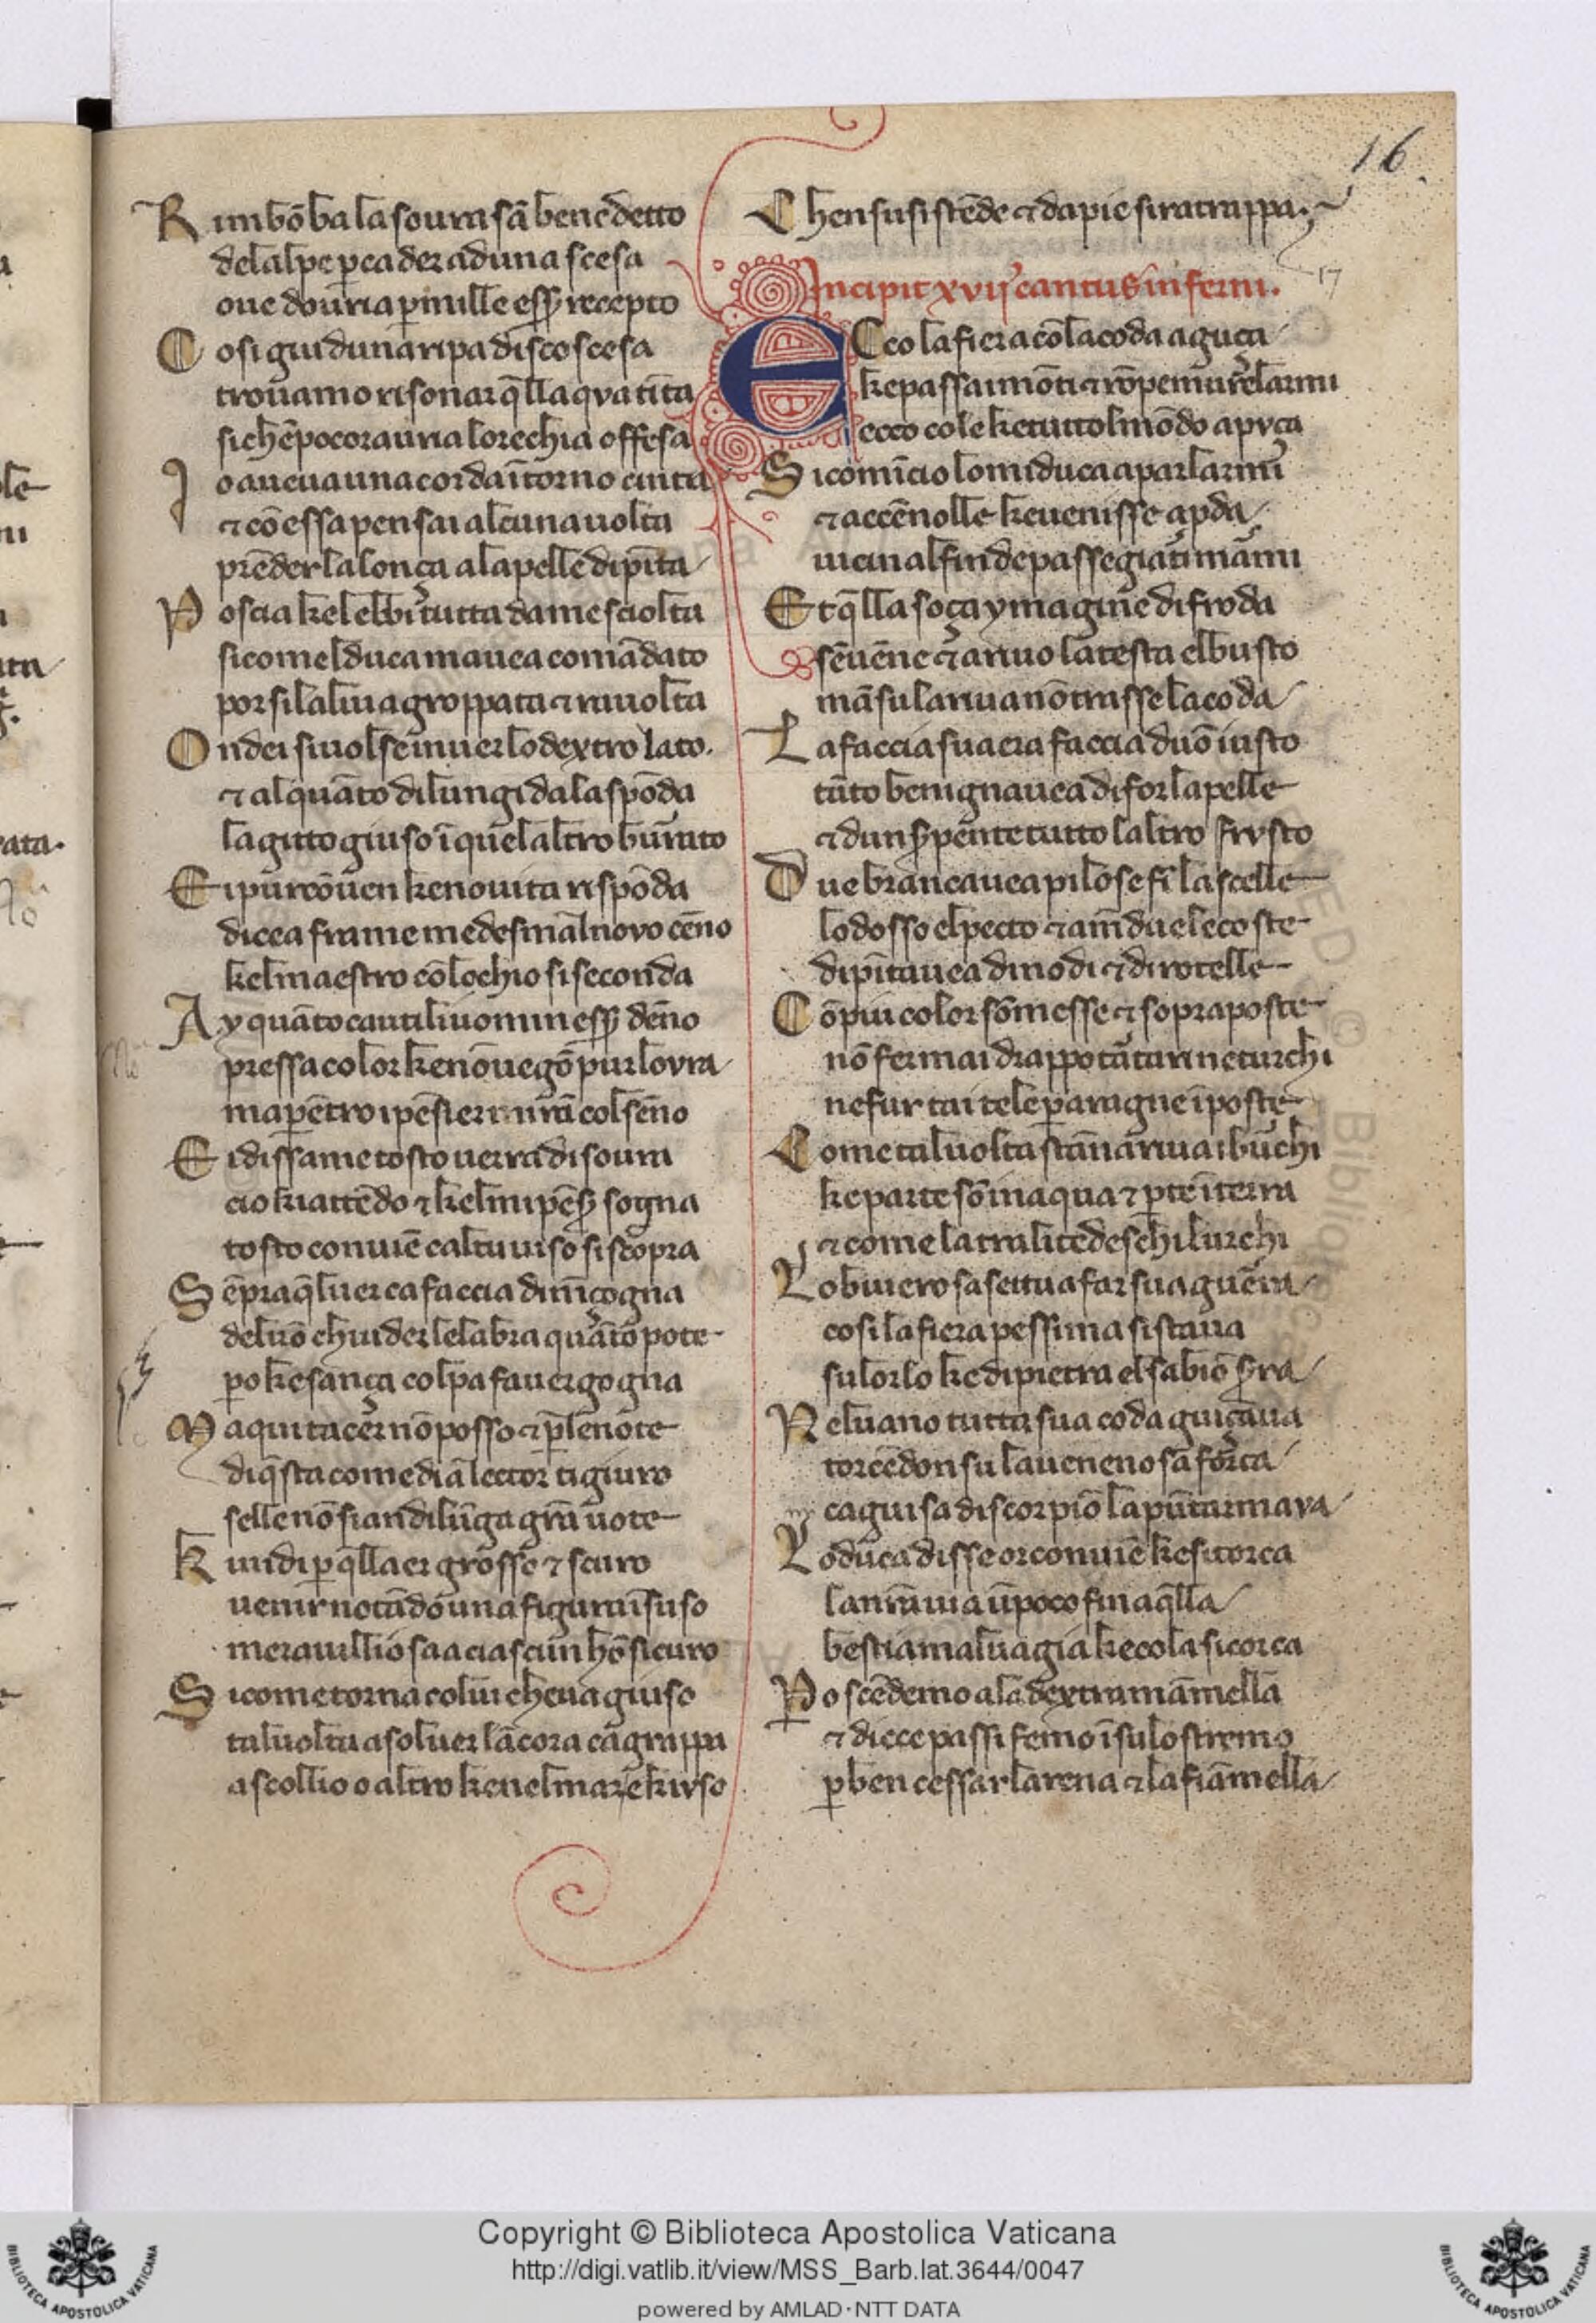 16
Rimbōba la soura sā benedetto
de lalpe p cader ad una scesa
oue douria p mille esser recepto
Cosi giu duna ripa discoscesa
trouamo risonar q̄lla qua tīta
si chē poco rauria lorechia offesa
Io aueua una corda ītorno cinta
⁊ cō essa pensai alcuna uolta
prēder la lonça a la pelle dipīta
Poscia kelebbi tutta da me sciolta
si comel duca mauea comādato
porsila lui agroppata ⁊ rauolta
Ondei si uolse inuer lo dextro lato.
⁊ alquāto di lungi da la spōda
la gitto giuso ī quel altro burrato
Ei pur cōuen ke nouita rispōda
dicea fra me medesmo al novo cēno
kel maestro cō lochio si seconda
Ay quāto cauti li uomin esser dēno
presso a color ke nō uegō pur lovra
ma p ētro i pēsier miran col sēno
El dissame tosto uerra di soura
cio kiattēdo ⁊ kel mi pēser sogna
tosto conuiē cal tu uiso si scopra
Sēpra q̄l uer ca faccia di mēçogna
de luō chiuder le labra quātō pote
po ke sança colpa fa uergogna
Ma qui tacer nō posso ⁊ p le note
di q̄sta comedia lector ti giuro
selle nō sian di lūga gra uote
Kiuidi p q̄llaer grosso ⁊ scuro
uenir notādo una figura ī suso
merauilliosa a ciascun hō sicuro
Si come torna colui che ua giuso
tal uolta a soluer lācora cagrappa
a scollio o altro ke nel mare kivso
Chen su si stēde ⁊ da pie si ratrappa.
Incipit xvij cantus inferni.
17
ECco la fiera cō la coda aguça
ke passa i mōti ⁊ rōpe muri ⁊ larmi
ecco cole ke tuttol mōdo apvça
Si comīcio lo mi duca a parlarmi
⁊ accēnolle ke uenisse a p̄da
uicin al fin de passegiati marmi
Et q̄lla soça ymagine di froda
sē uēne ⁊ ariuo la testa el busto
mā su la riua nō trasse la coda
La faccia sua era faccia duō iusto
tāto benigna uea di for la pelle
⁊ dun serpente tutto laltro frvsto
Due branca uea pilose fī lascelle
lo dosso el pecto ⁊ amēdue le coste
dipīta uea di nodi ⁊ di rotelle
Cō piu color sōmesse ⁊ sopraposte
nō fer mai drappo tātari ne turchi
ne fur tai tele p aragne īposte
Come tal uolta stāno a riua i burchi
ke parte sō in aqua ⁊ pte ī terra
⁊ come la tra li tedeschi lurchi
Lo biuero sasetta a far sua guerra
cosi la fiera pessima si staua
su lorlo ke di pietra el sabiō serra
Nel uano tutta sua coda guiçaua
torcēdo n su la uenenosa forca
ca guisa di scorpiō la pūta rmava
Lo duca disse or conuiē ke si torca
la nrā uia ū poco fin a q̄lla
bestia maluagia ke cola si corca
Po scēdemo a la dextra māmella
⁊ diece passi femo ī su lo stremo
p ben cessar larena ⁊ la fiāmella
Copyright © Biblioteca Apostolica Vaticana
http://digi.vatlib.it/view/MSS_Barb.lat.3644/0047
powered by AMLAD·NTT DATA
BIBLIOTECA APOSTOLICA VATICANA
BIBLIOTECA APOSTOLICA VATICANA